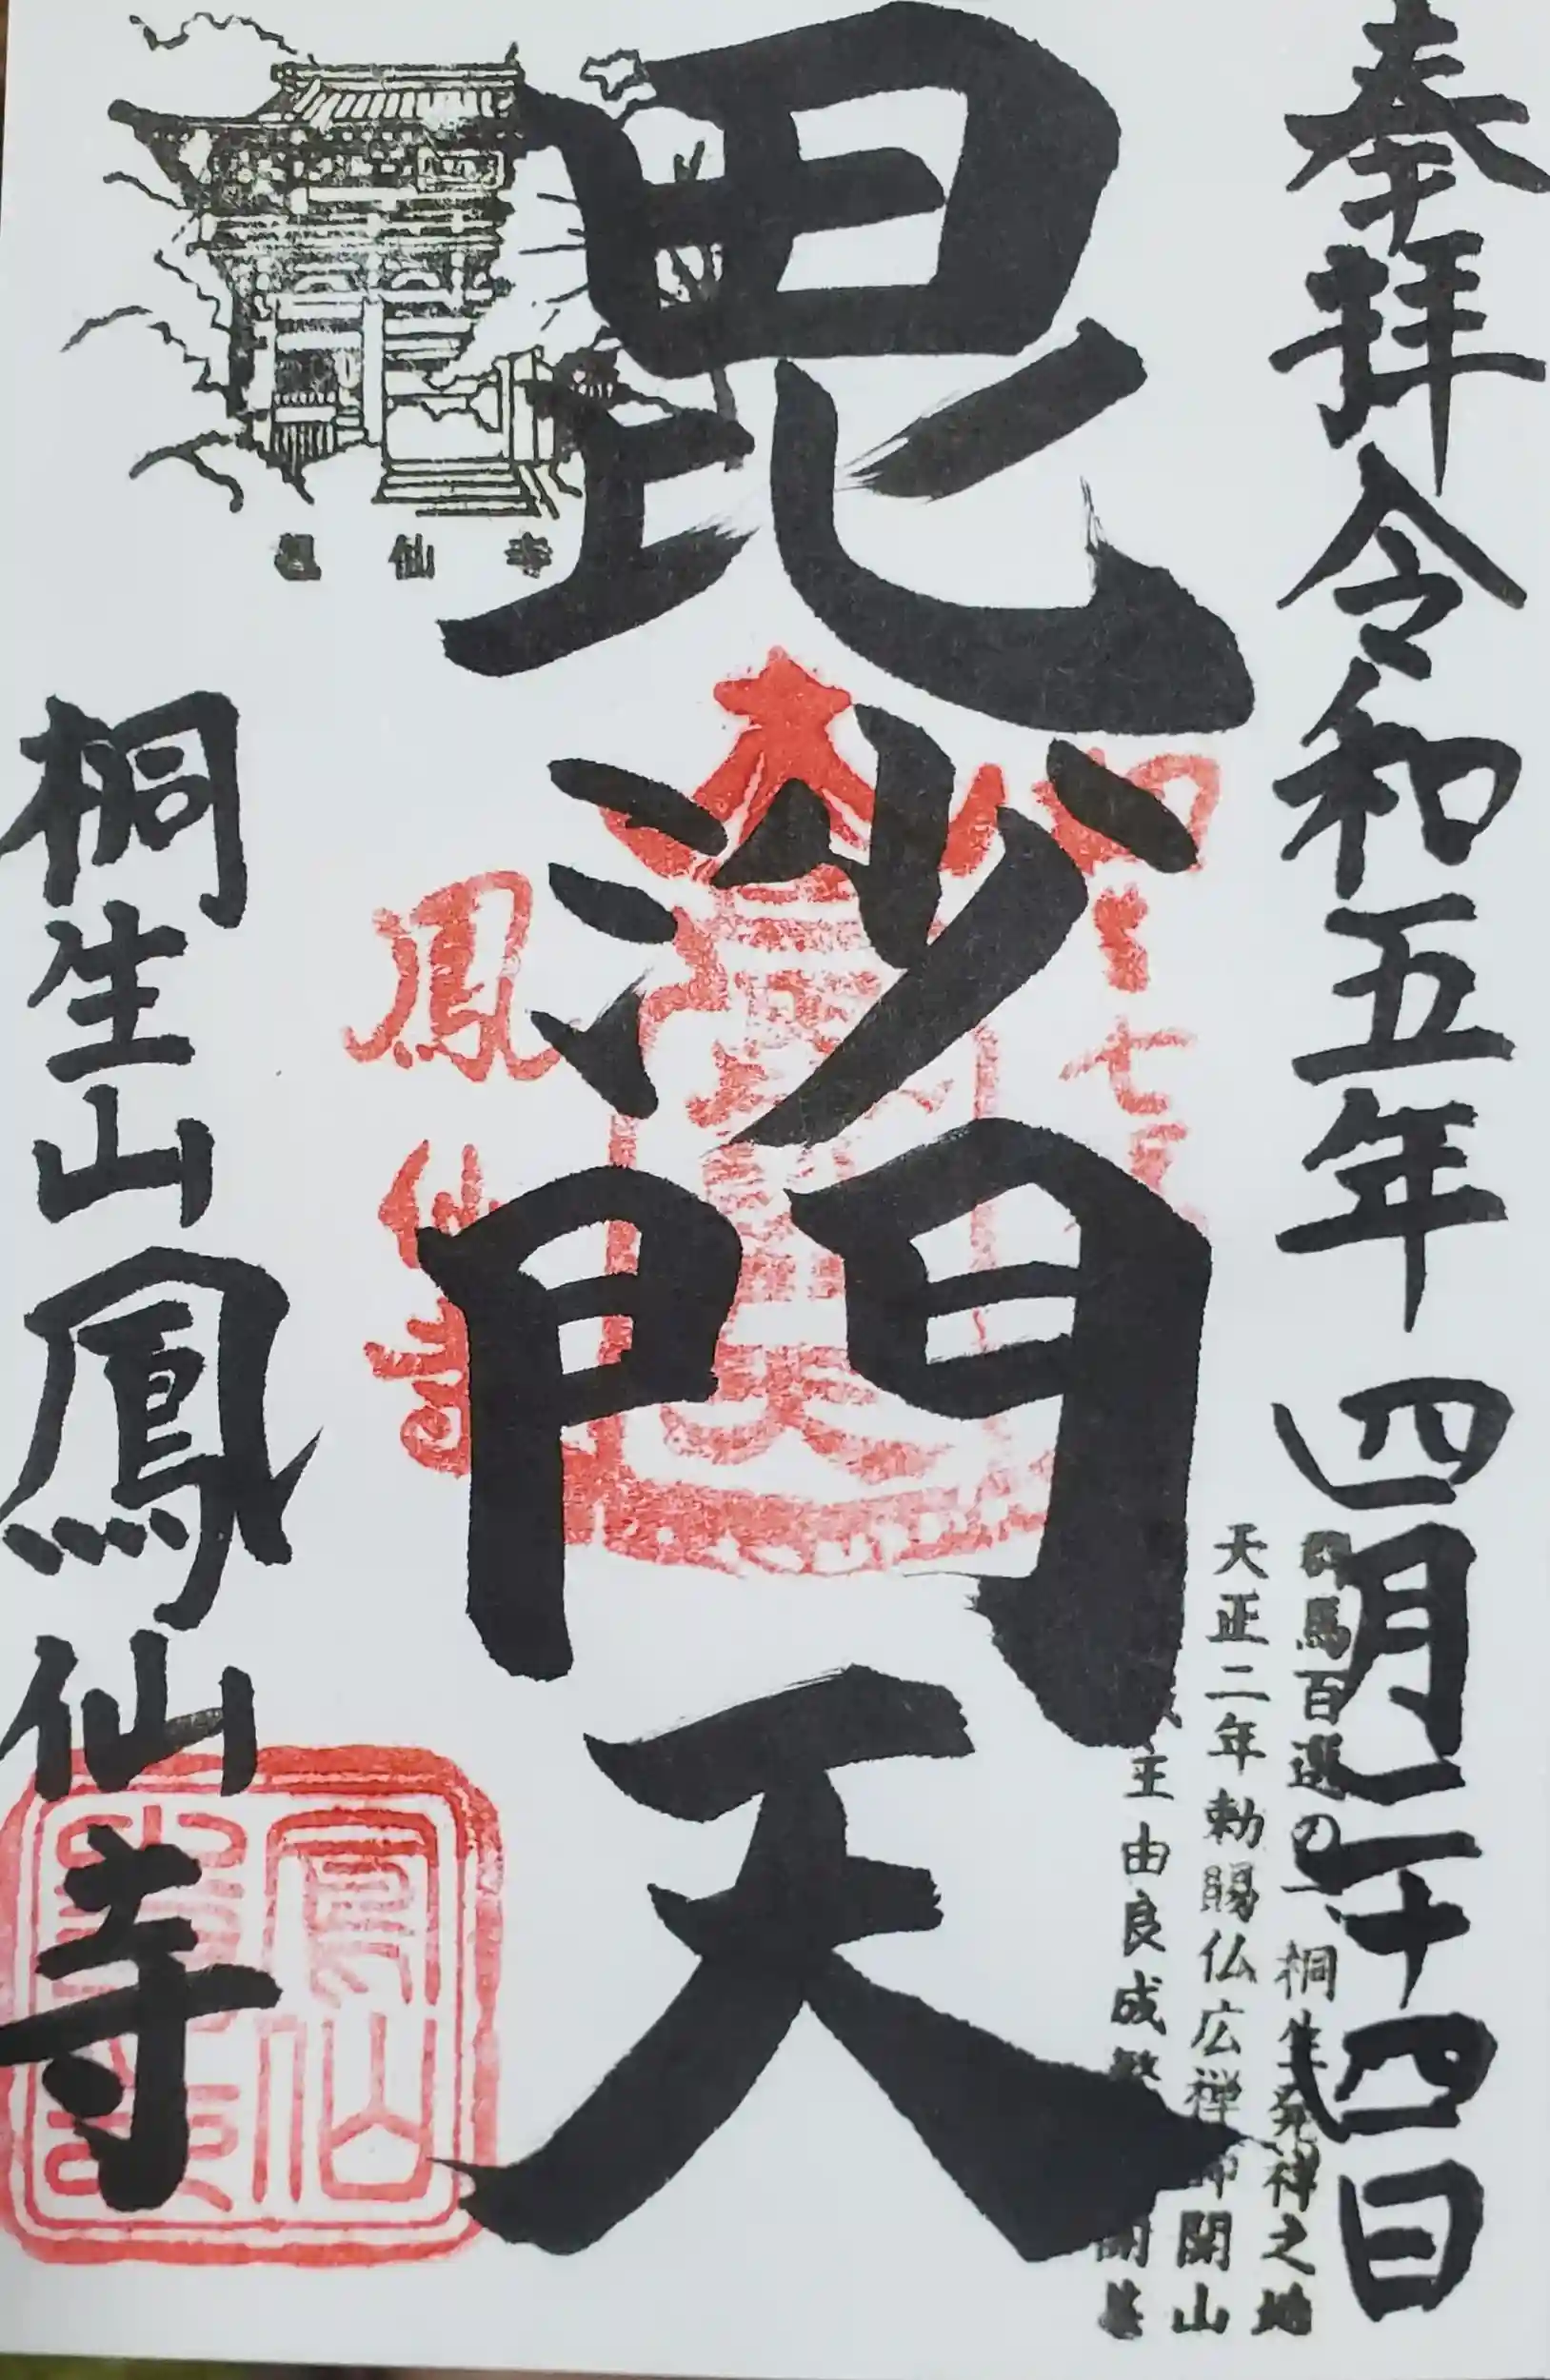 奉拝 令和五年 四月二十四日
群馬百選の一、桐生発祥之地
天正二年勅賜仏広禅師開山
主由良成繁開基
毘沙門天
鳳仙寺
鳳仙寺
桐生山鳳仙寺
鳳仙